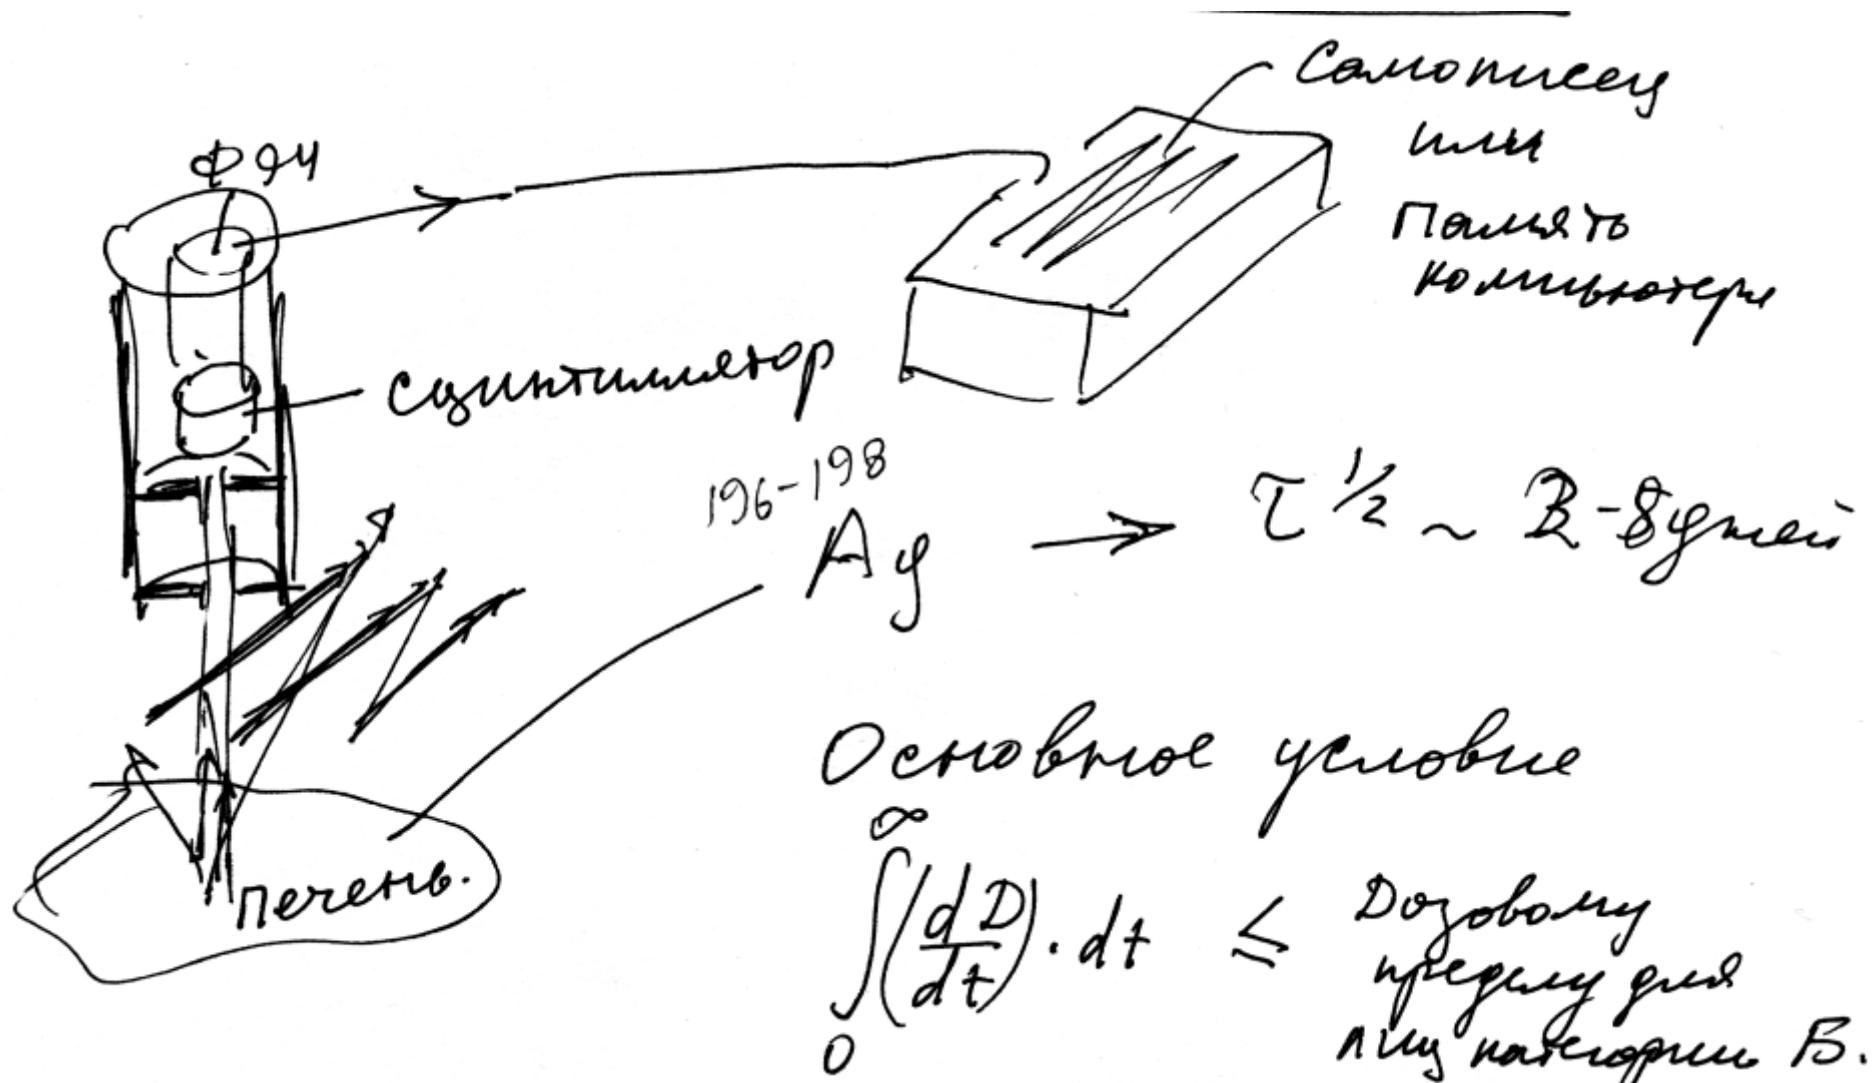 ФЭУ
Самописец
или
Память
компьютера
Сцинтиллятор
196-198
Au → τ 1/2 ~ 2-8 дней
Основное условие
∞
∫(dD/dt)·dt ≤ Дозовому
0
пределу для
лиц категории Б.
Печень.